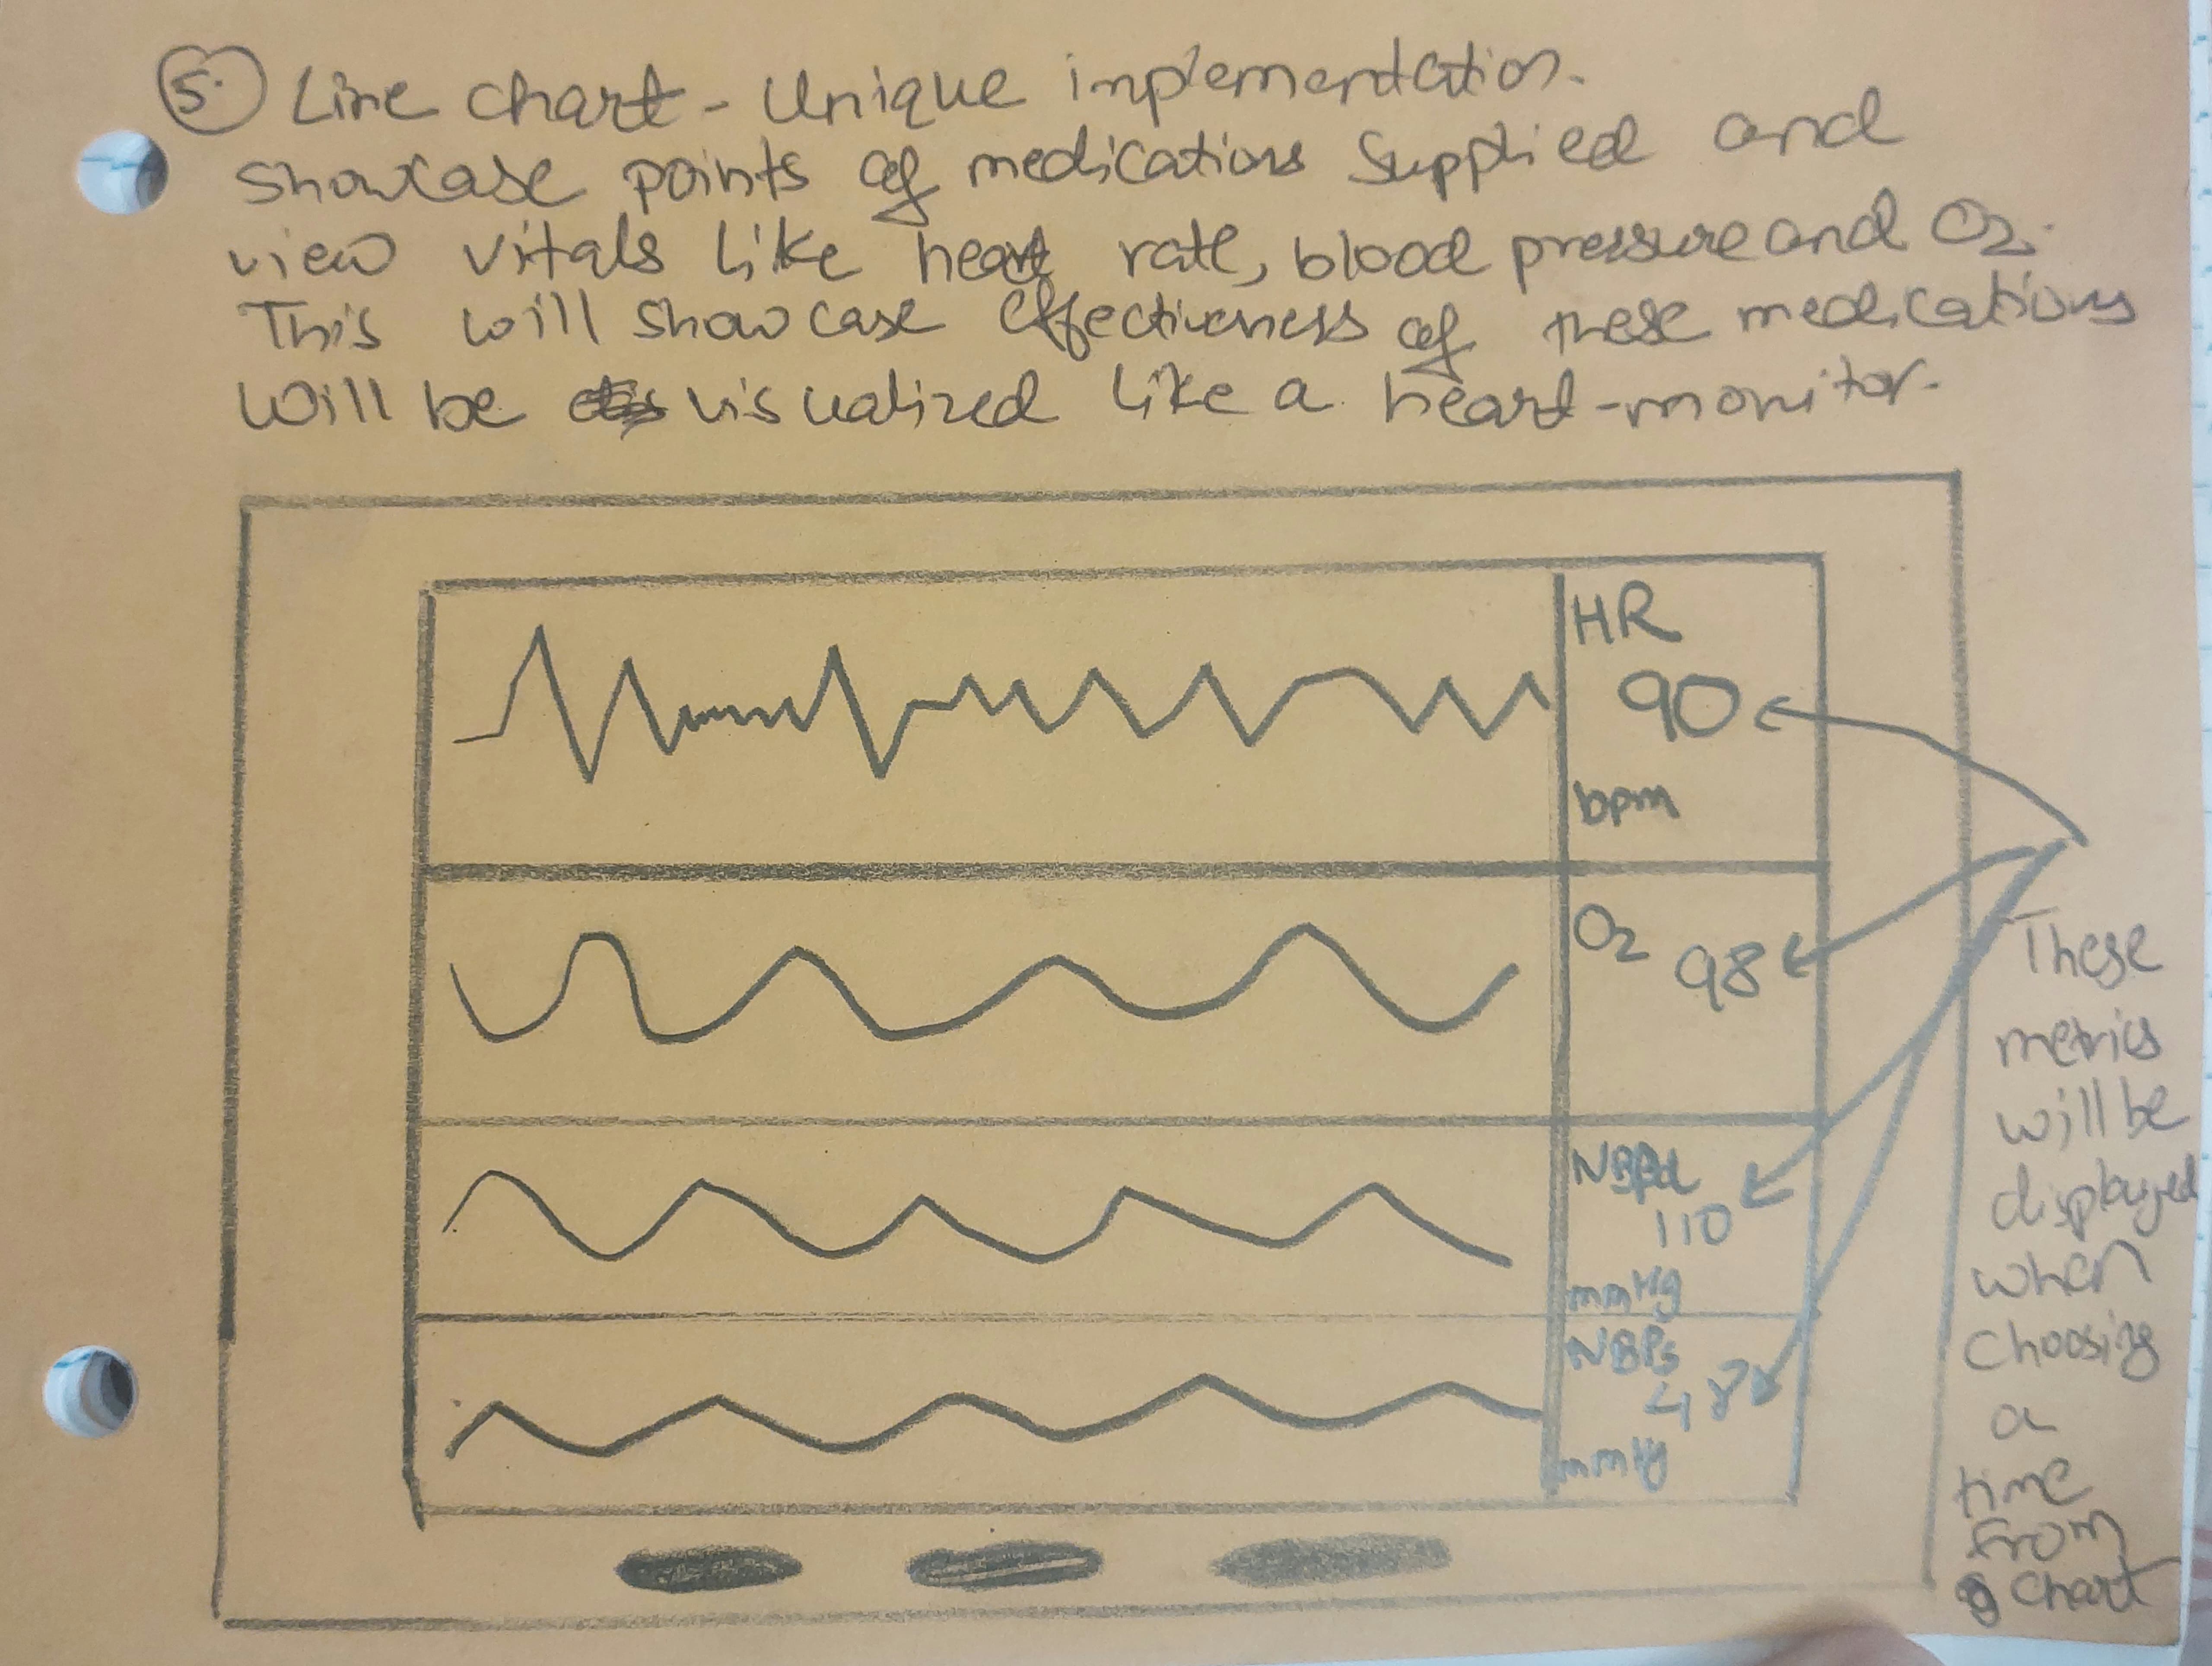 5. Line chart - Unique implementation.
Showcase points of medications supplied and
view vitals like heart rate, blood pressure and O2.
This will showcase effectiveness of these medications
will be visualized like a heart-monitor.
HR
90
bpm
O2 98
NBPd
110
mmHg
NBPs
48
mmHg
These
metrics
will be
displayed
when
choosing
a
time
from
chart